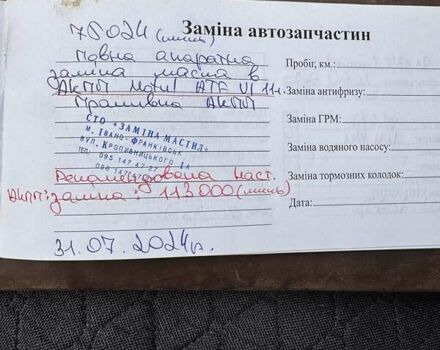 78024 (миль)
Повна апаратна
заміна масла в
АКПП Motul ATF VI 11л
Промивка АКПП
СТО "ЗАМІНА МАСТИЛ"
м. ІВАНО-ФРАНКІВСЬК
ВУЛ. КРОПИВНИЦЬКОГО 1А
ТЕЛ. 095 147 47 27
Рекомендована наст.
АКПП: заміна: 113000 (миль)
31.07.2024р.
Заміна автозапчастин
Пробіг, км.:
Заміна антифризу:
Заміна ГРМ:
Заміна водяного насосу:
Заміна тормозних колодок:
Дата: